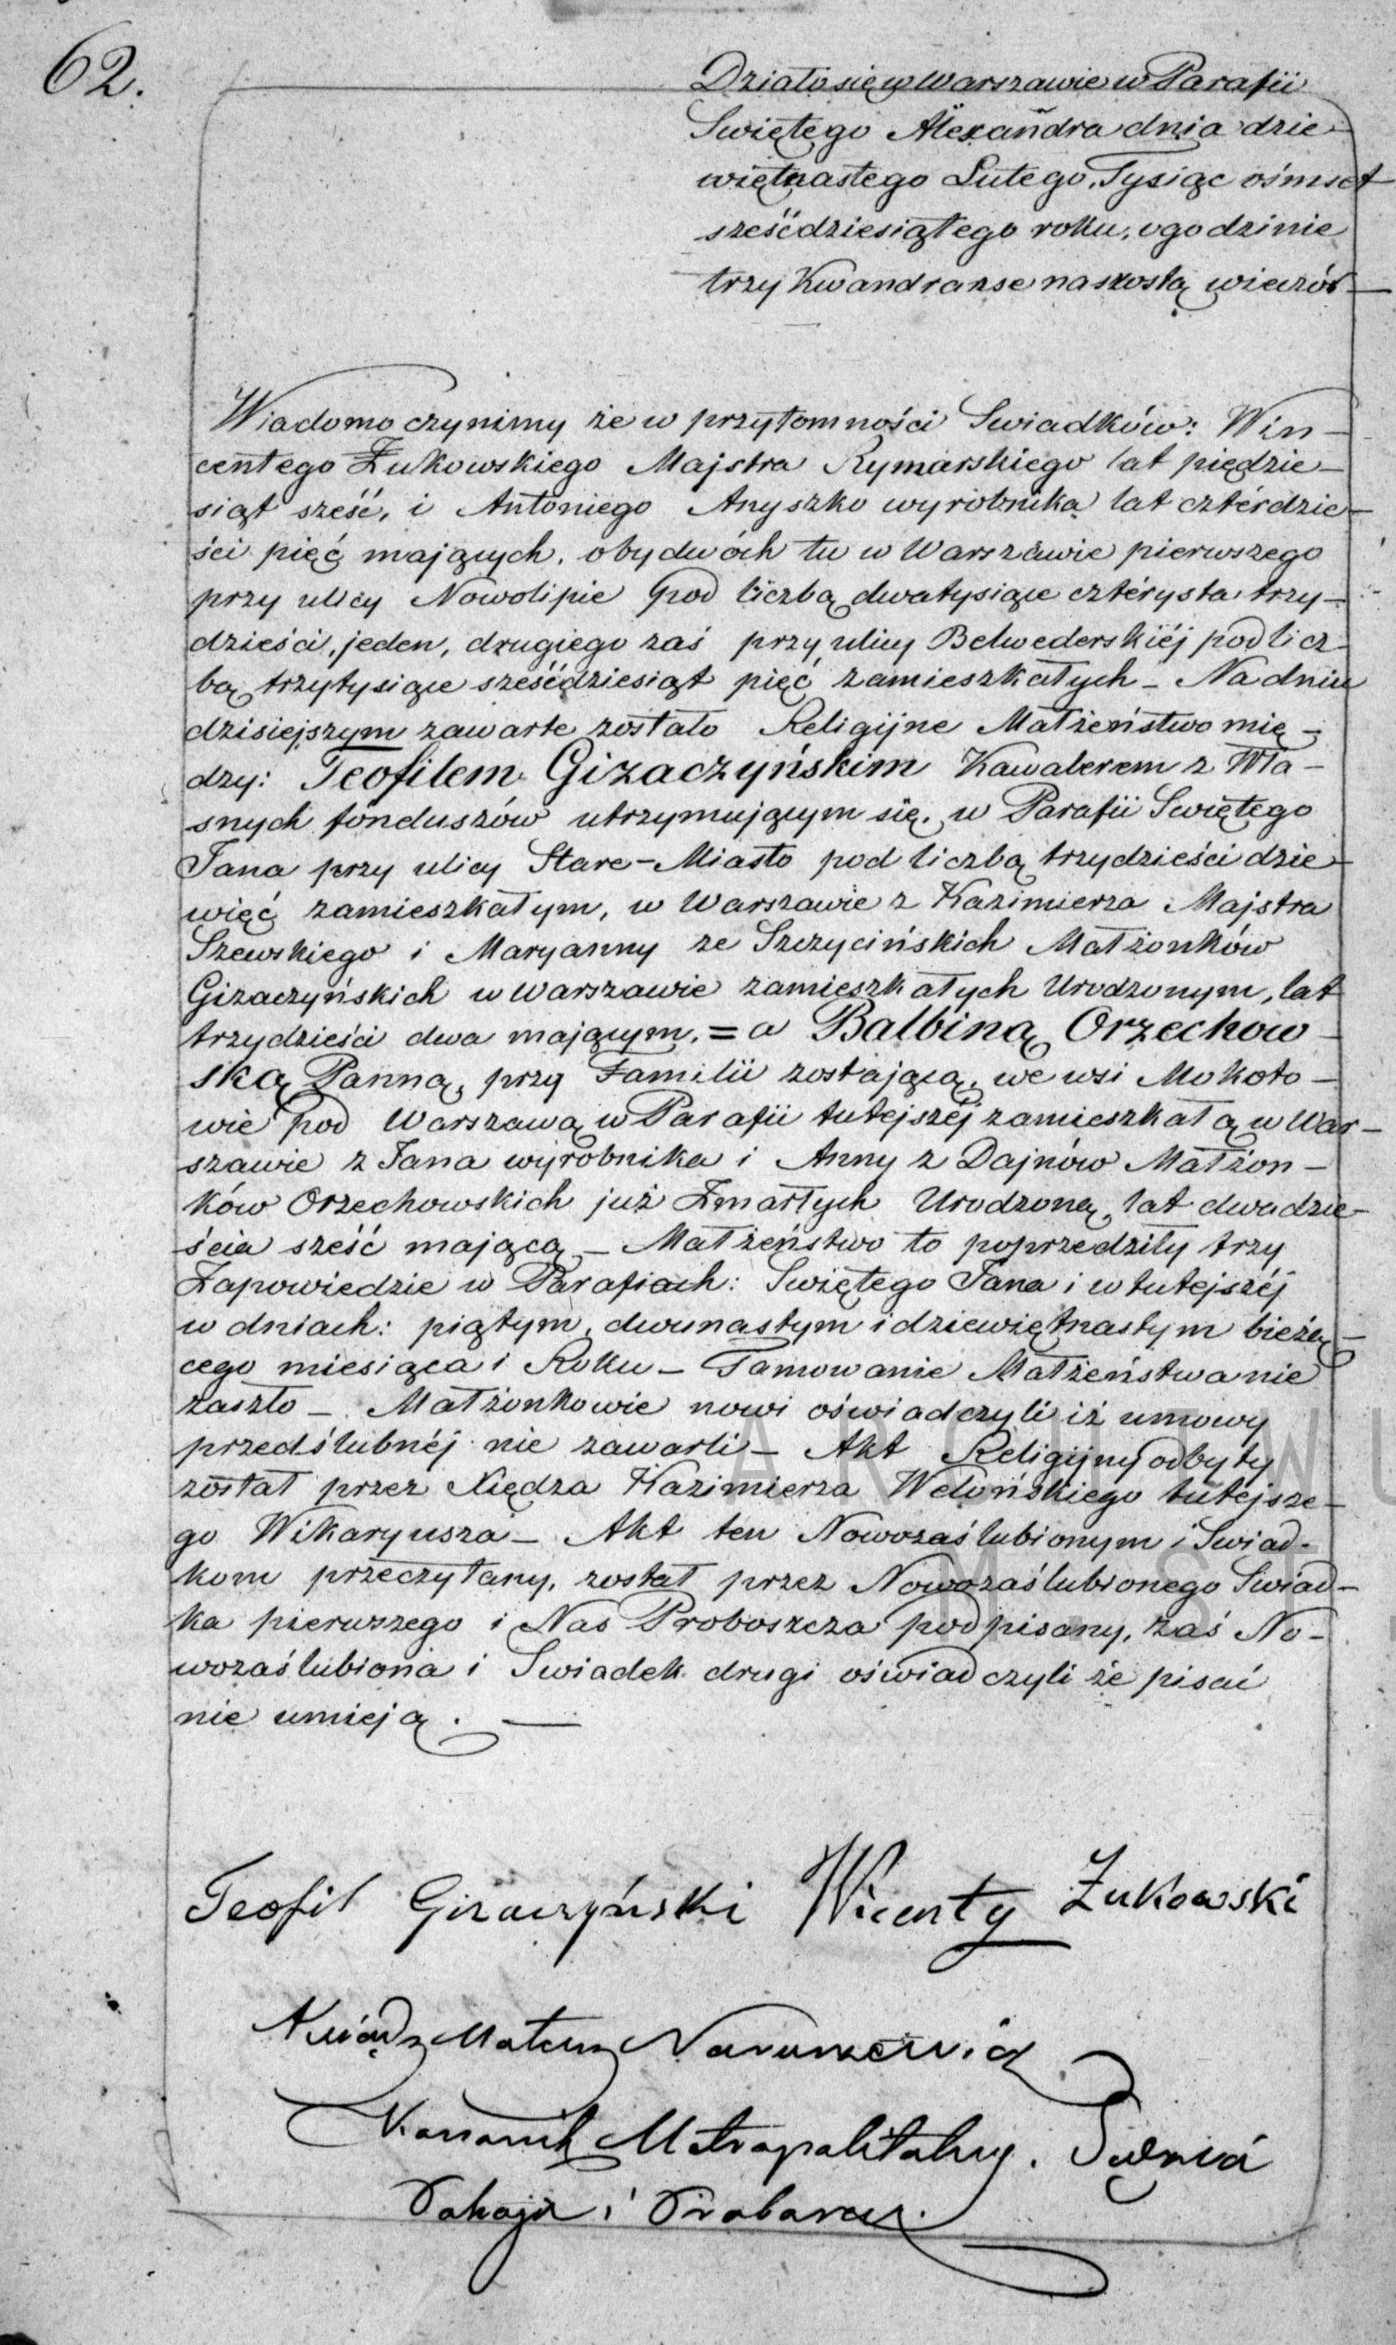 62.
Działo się w Warszawie w Parafii
Swiętego Alexandra dnia dzie-
więtnastego Lutego, Tysiąc ośmset
sześćdziesiątego roku, o godzinie
trzy Kwandranse na szóstą wieczór —
Wiadomo czynimy że w przytomności Swiadków: Win-
centego Żukowskiego Majstra Rymarskiego lat pięćdzie-
siąt sześć, i Antoniego Anyszko wyrobnika lat czterdzie-
ści pięć mających, obydwóch tu w Warszawie pierwszego
przy ulicy Nowolipie pod liczbą dwatysiące czterysta trzy-
dzieści jeden, drugiego zaś przy ulicy Belwederskiéj pod licz-
bą trzytysiące sześćdziesiąt pięć zamieszkałych — Na dniu
dzisiejszym zawarte zostało Religijne Małżeństwo mię-
dzy: Teofilem Gizaczyńskim Kawalerem z Wła-
snych funduszów utrzymującym się, w Parafii Swiętego
Jana przy ulicy Stare-Miasto pod liczbą trzydzieści dzie-
więć zamieszkałym, w Warszawie z Kazimierza Majstra
Szewskiego i Maryanny ze Szczycińskich Małżonków
Gizaczyńskich w Warszawie zamieszkałych Urodzonym, lat
trzydzieści dwa mającym, = a Balbiną Orzechow-
ską Panną, przy Familii zostającą, we wsi Mokoto-
wie pod Warszawą w Parafii tutejszéj zamieszkałą w War-
szawie z Jana wyrobnika i Anny z Dajnów Małżon-
ków Orzechowskich już Zmarłych Urodzoną, lat dwadzie-
ścia sześć mającą — Małżeństwo to poprzedziły trzy
Zapowiedzie w Parafiach: Swiętego Jana i w tutejszéj
w dniach: piątym, dwunastym i dziewiętnastym bieżą-
cego miesiąca i Roku — Tamowanie Małżeństwa nie
zaszło — Małżonkowie nowi oświadczyli iż umowy
przedślubnéj nie zawarli — Akt Religijny odbyty
został przez Xiędza Kazimierza Welońskiego tutejsze-
go Wikaryusza — Akt ten Nowozaślubionym i Swiad-
kom przeczytany, został przez Nowozaślubionego Swiad-
ka pierwszego i Nas Proboszcza podpisany, zaś No-
wozaślubiona i Swiadek drugi oświadczyli że pisać
nie umieją. —
Teofil Gizaczyński Wicenty Żukowski
Ksiądz Mateusz
Kanonik Metropolitalny, Sędzia
Pokoju i Proboszcz.